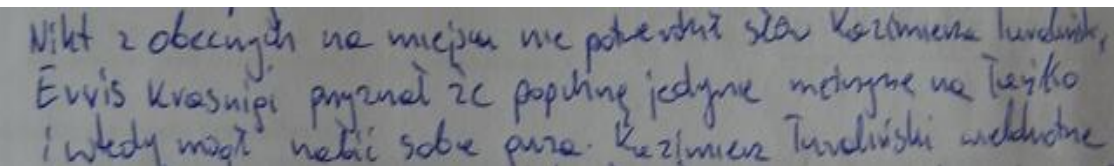 Nikt z obecnych na miejscu nie potwierdził słów Kazimierza
Euvis Krasnipi przyznał że popchnę jedynie mężczyznę na łóżko
i wtedy mógł nabić sobie guza. Kazimierz Turdiński